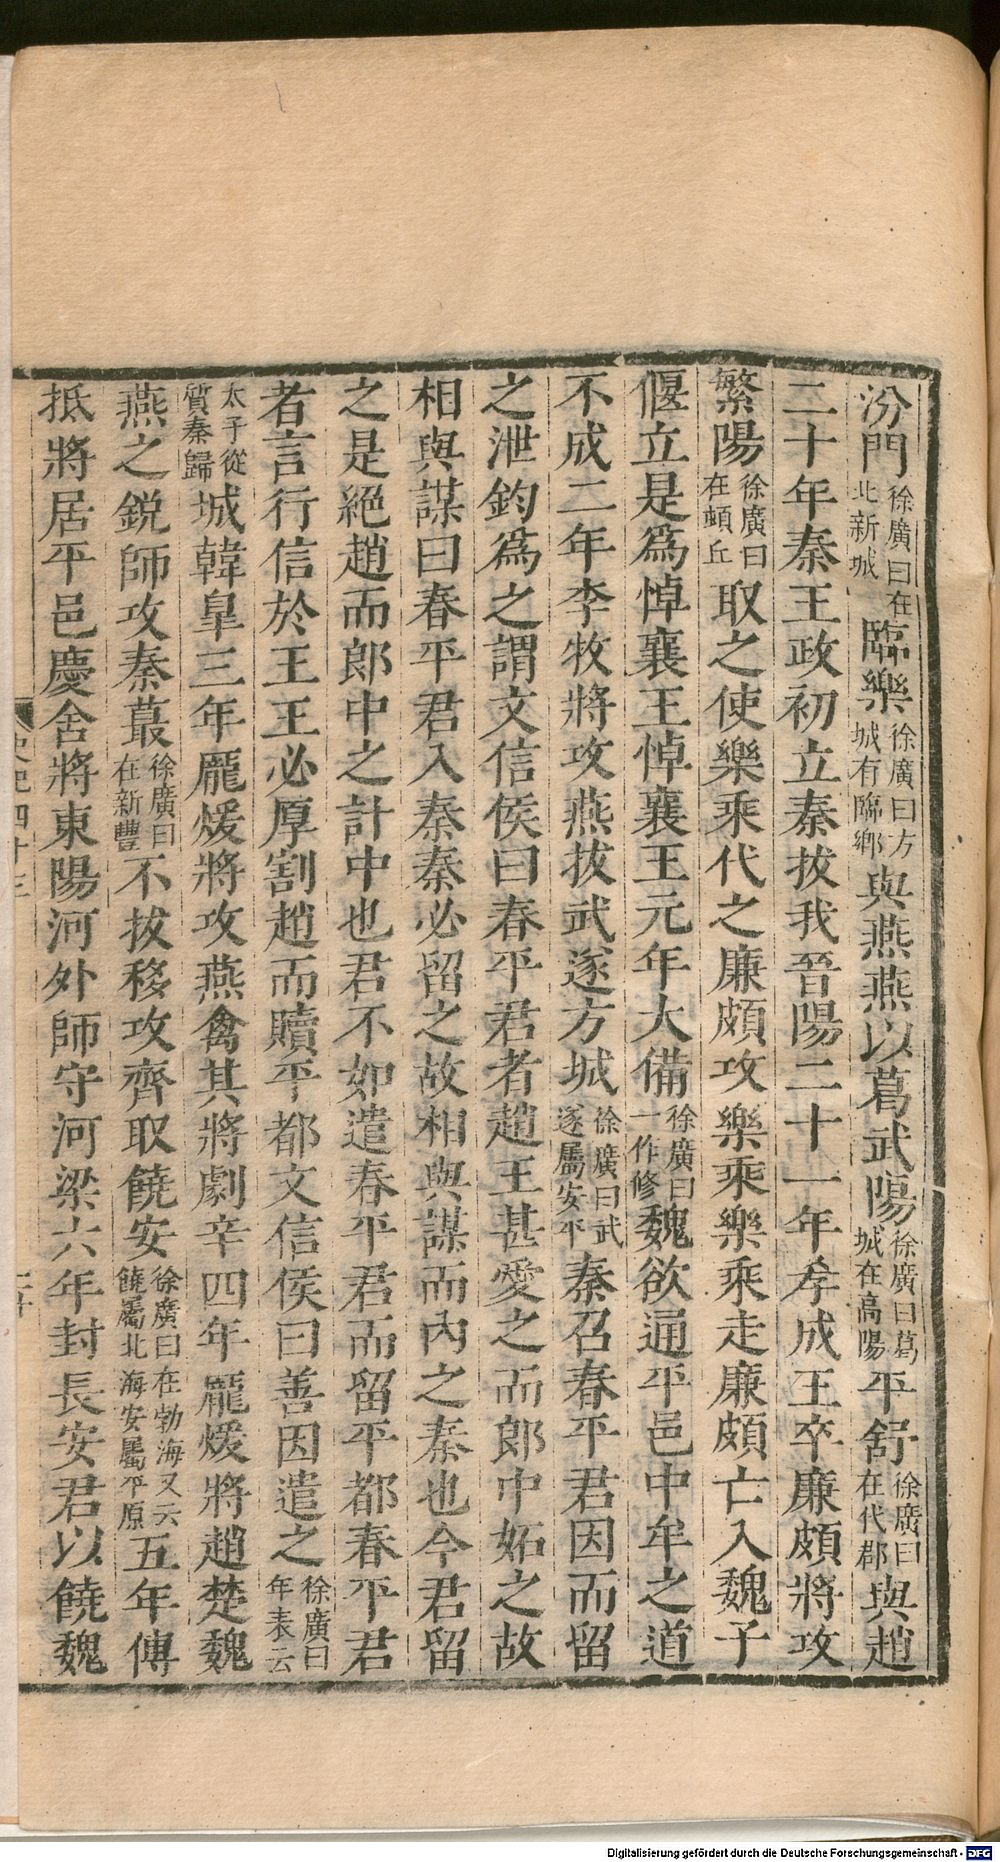 汾門徐廣曰在北新城臨樂徐廣曰方城有臨鄉與燕燕以葛武陽徐廣曰葛城在高陽平舒徐廣曰在代郡與趙
二十年秦王政初立秦拔我晉陽二十一年孝成王卒廉頗將攻
繁陽徐廣曰在頓丘取之使樂乘代之廉頗攻樂乘樂乘走廉頗亡入魏子
偃立是爲悼襄王悼襄王元年大備徐廣曰一作修魏欲通平邑中牟之道
不成二年李牧將攻燕拔武遂方城徐廣曰武遂屬安平秦召春平君因而留
之泄鈞爲之謂文信侯曰春平君者趙王甚愛之而郎中妬之故
相與謀曰春平君入秦秦必留之故相與謀而內之秦也今君留
之是絕趙而郎中之計中也君不如遣春平君而留平都春平君
者言行信於王王必厚割趙而贖平都文信侯曰善因遣之徐廣曰年表云
太子從質秦歸城韓臯三年龎煖將攻燕禽其將劇辛四年龎煖將趙楚魏
燕之銳師攻秦蕞徐廣曰在新豐不拔移攻齊取饒安徐廣曰在勃海又云饒屬北海安屬平原五年傅
抵將居平邑慶舍將東陽河外師守河梁六年封長安君以饒魏
史記四十三
二十
Digitalisierung gefördert durch die Deutsche Forschungsgemeinschaft - DFG